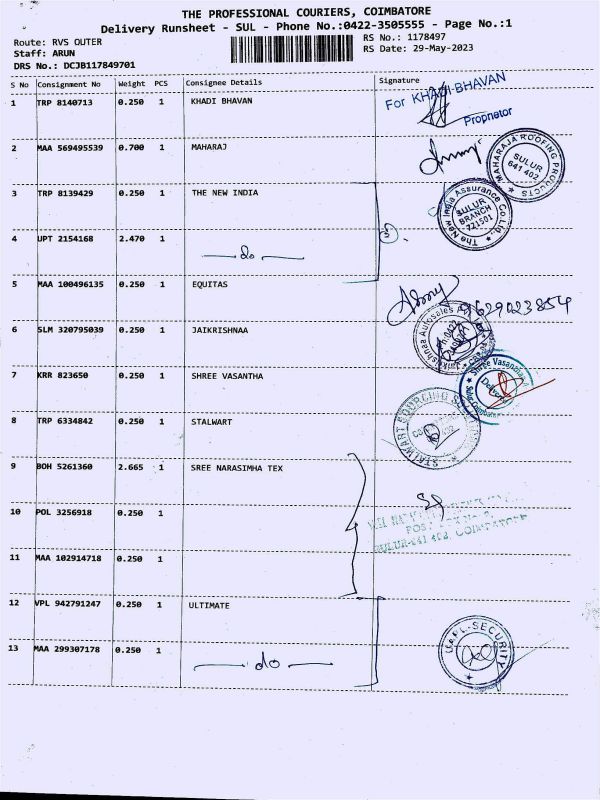 THE PROFESSIONAL COURIERS, COIMBATORE
Delivery Runsheet - SUL - Phone No.:0422-3505555 - Page No.:1
Route: RVS OUTER
Staff: ARUN
DRS No.: DCJB117849701
RS No.: 1178497
RS Date: 29-May-2023
S No Consignment No Weight PCS Consignee Details Signature
1 TRP 8140713 0.250 1 KHADI BHAVAN
For KHADI-BHAVAN
Proprietor
2 MAA 569495539 0.700 1 MAHARAJ
MAHARAJA ROOFING PRODUCTS
SULUR
641 402
3 TRP 8139429 0.250 1 THE NEW INDIA
The New India Assurance Co.Ltd.,
SULUR
BRANCH
721501
4 UPT 2154168 2.470 1 do
5 MAA 100496135 0.250 1 EQUITAS
9629023854
6 SLM 320795039 0.250 1 JAIKRISHNAA
Jaikrishnaa Autosales
7 KRR 823650 0.250 1 SHREE VASANTHA
Shree Vasantha
8 TRP 6334842 0.250 1 STALWART
STALWART SOURCING
9 BOH 5261360 2.665 1 SREE NARASIMHA TEX
10 POL 3256918 0.250 1
SULUR-641 402, COIMBATORE
11 MAA 102914718 0.250 1
12 VPL 942791247 0.250 1 ULTIMATE
SECURITY
13 MAA 299307178 0.250 1 do